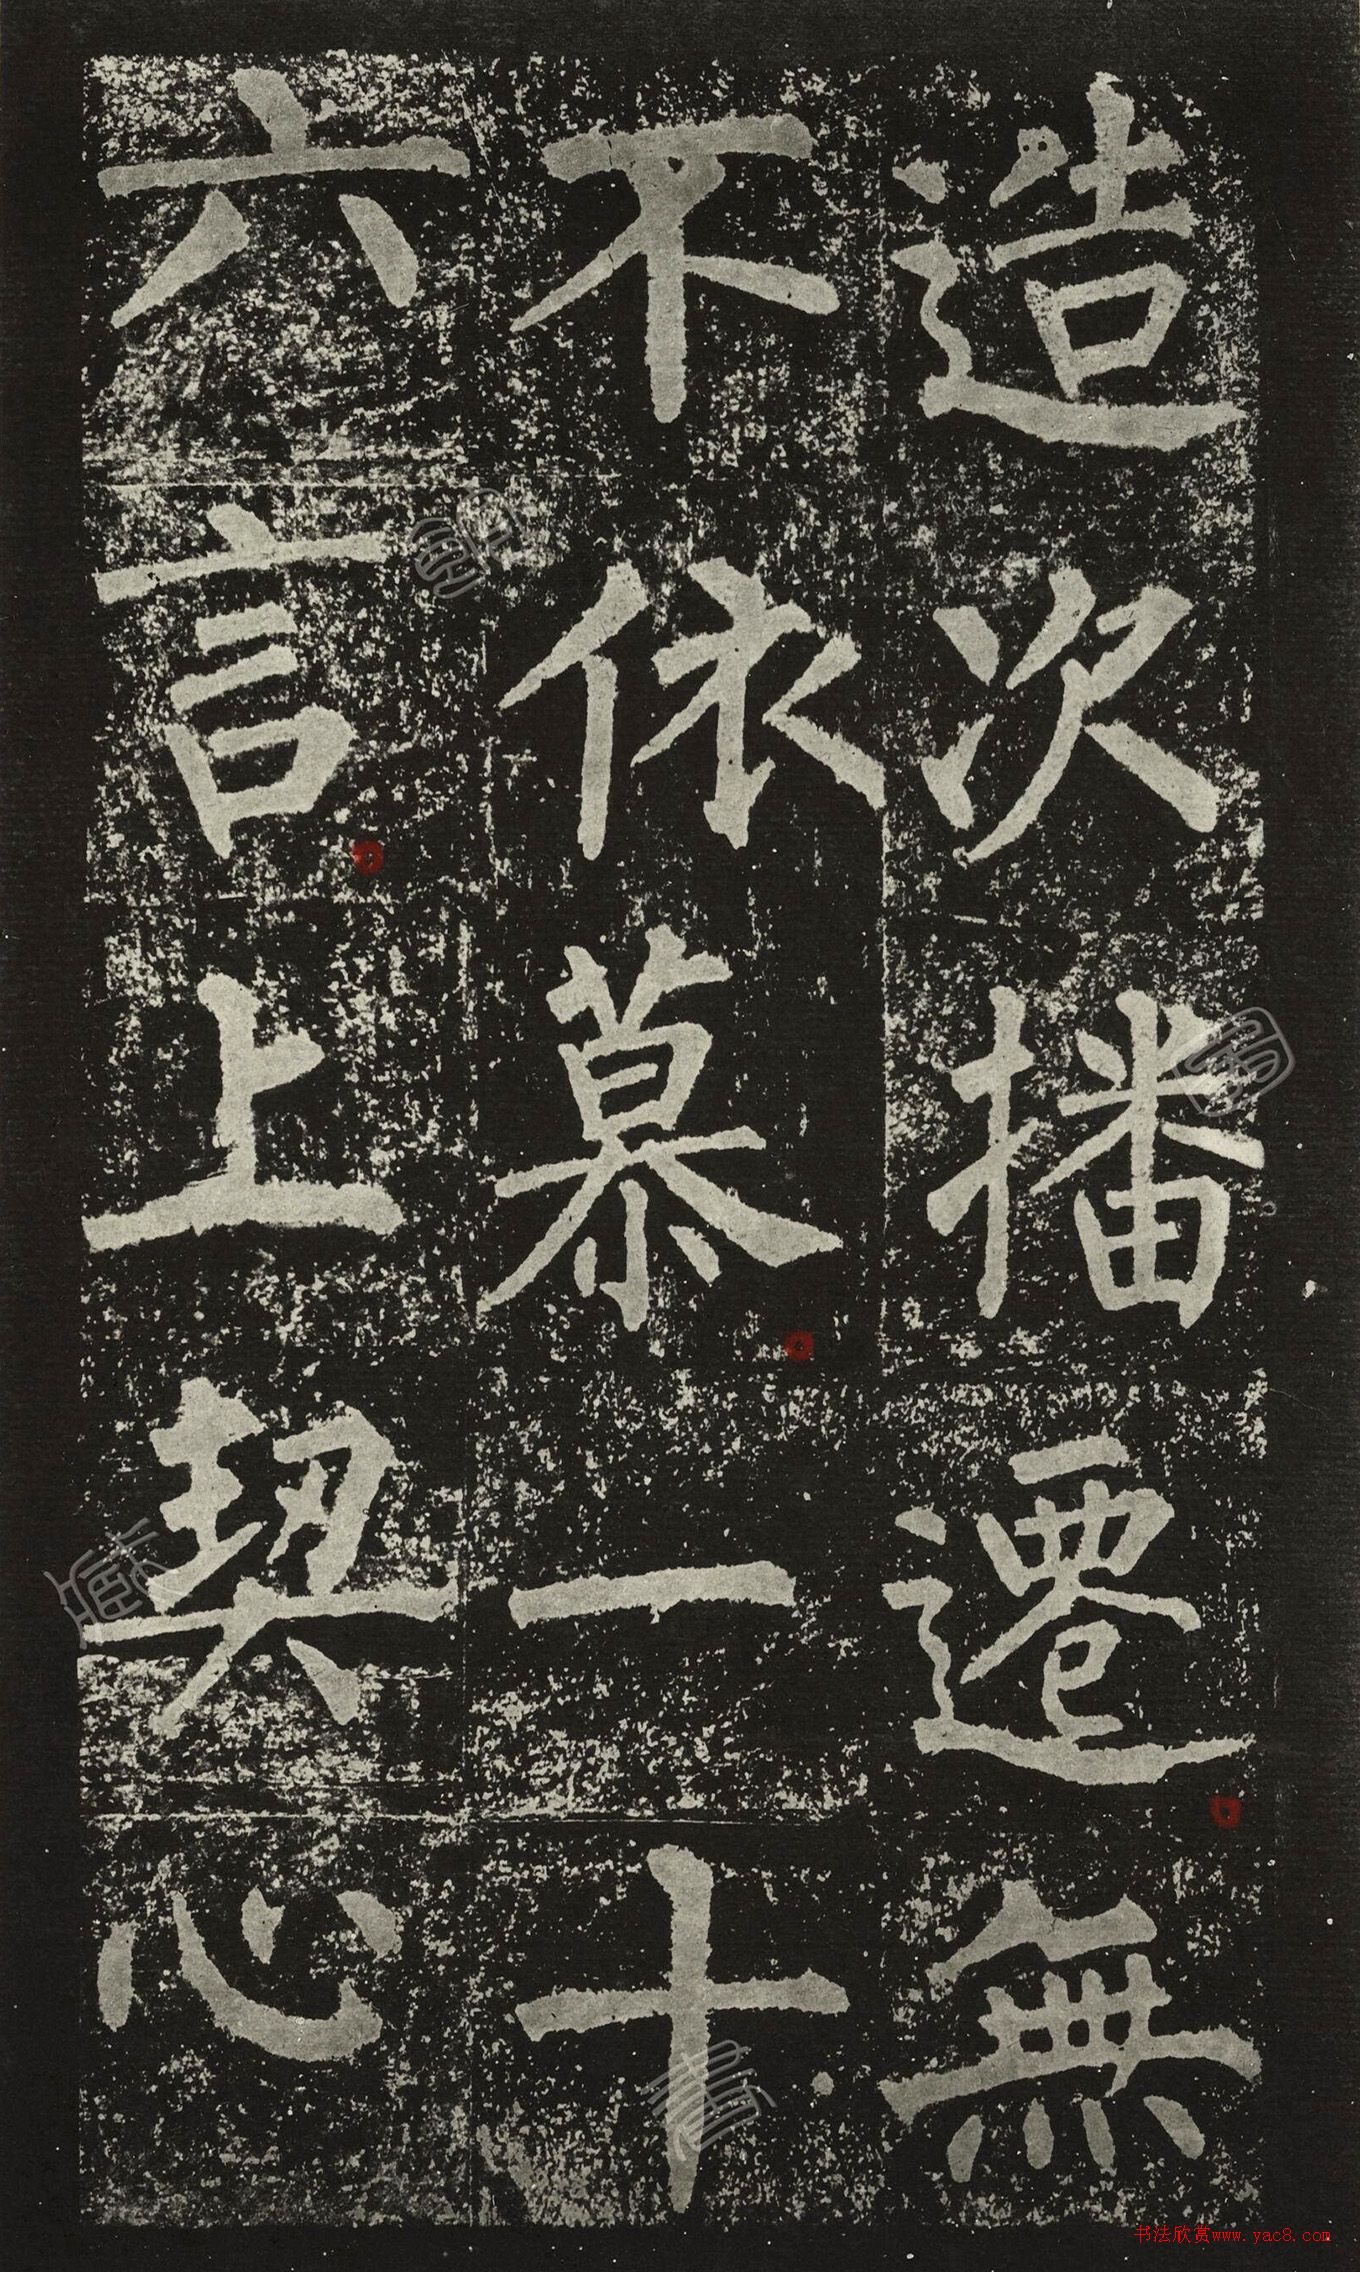 造次播遷無
不依慕一十
六言上契心
书法欣赏www.yac8.com